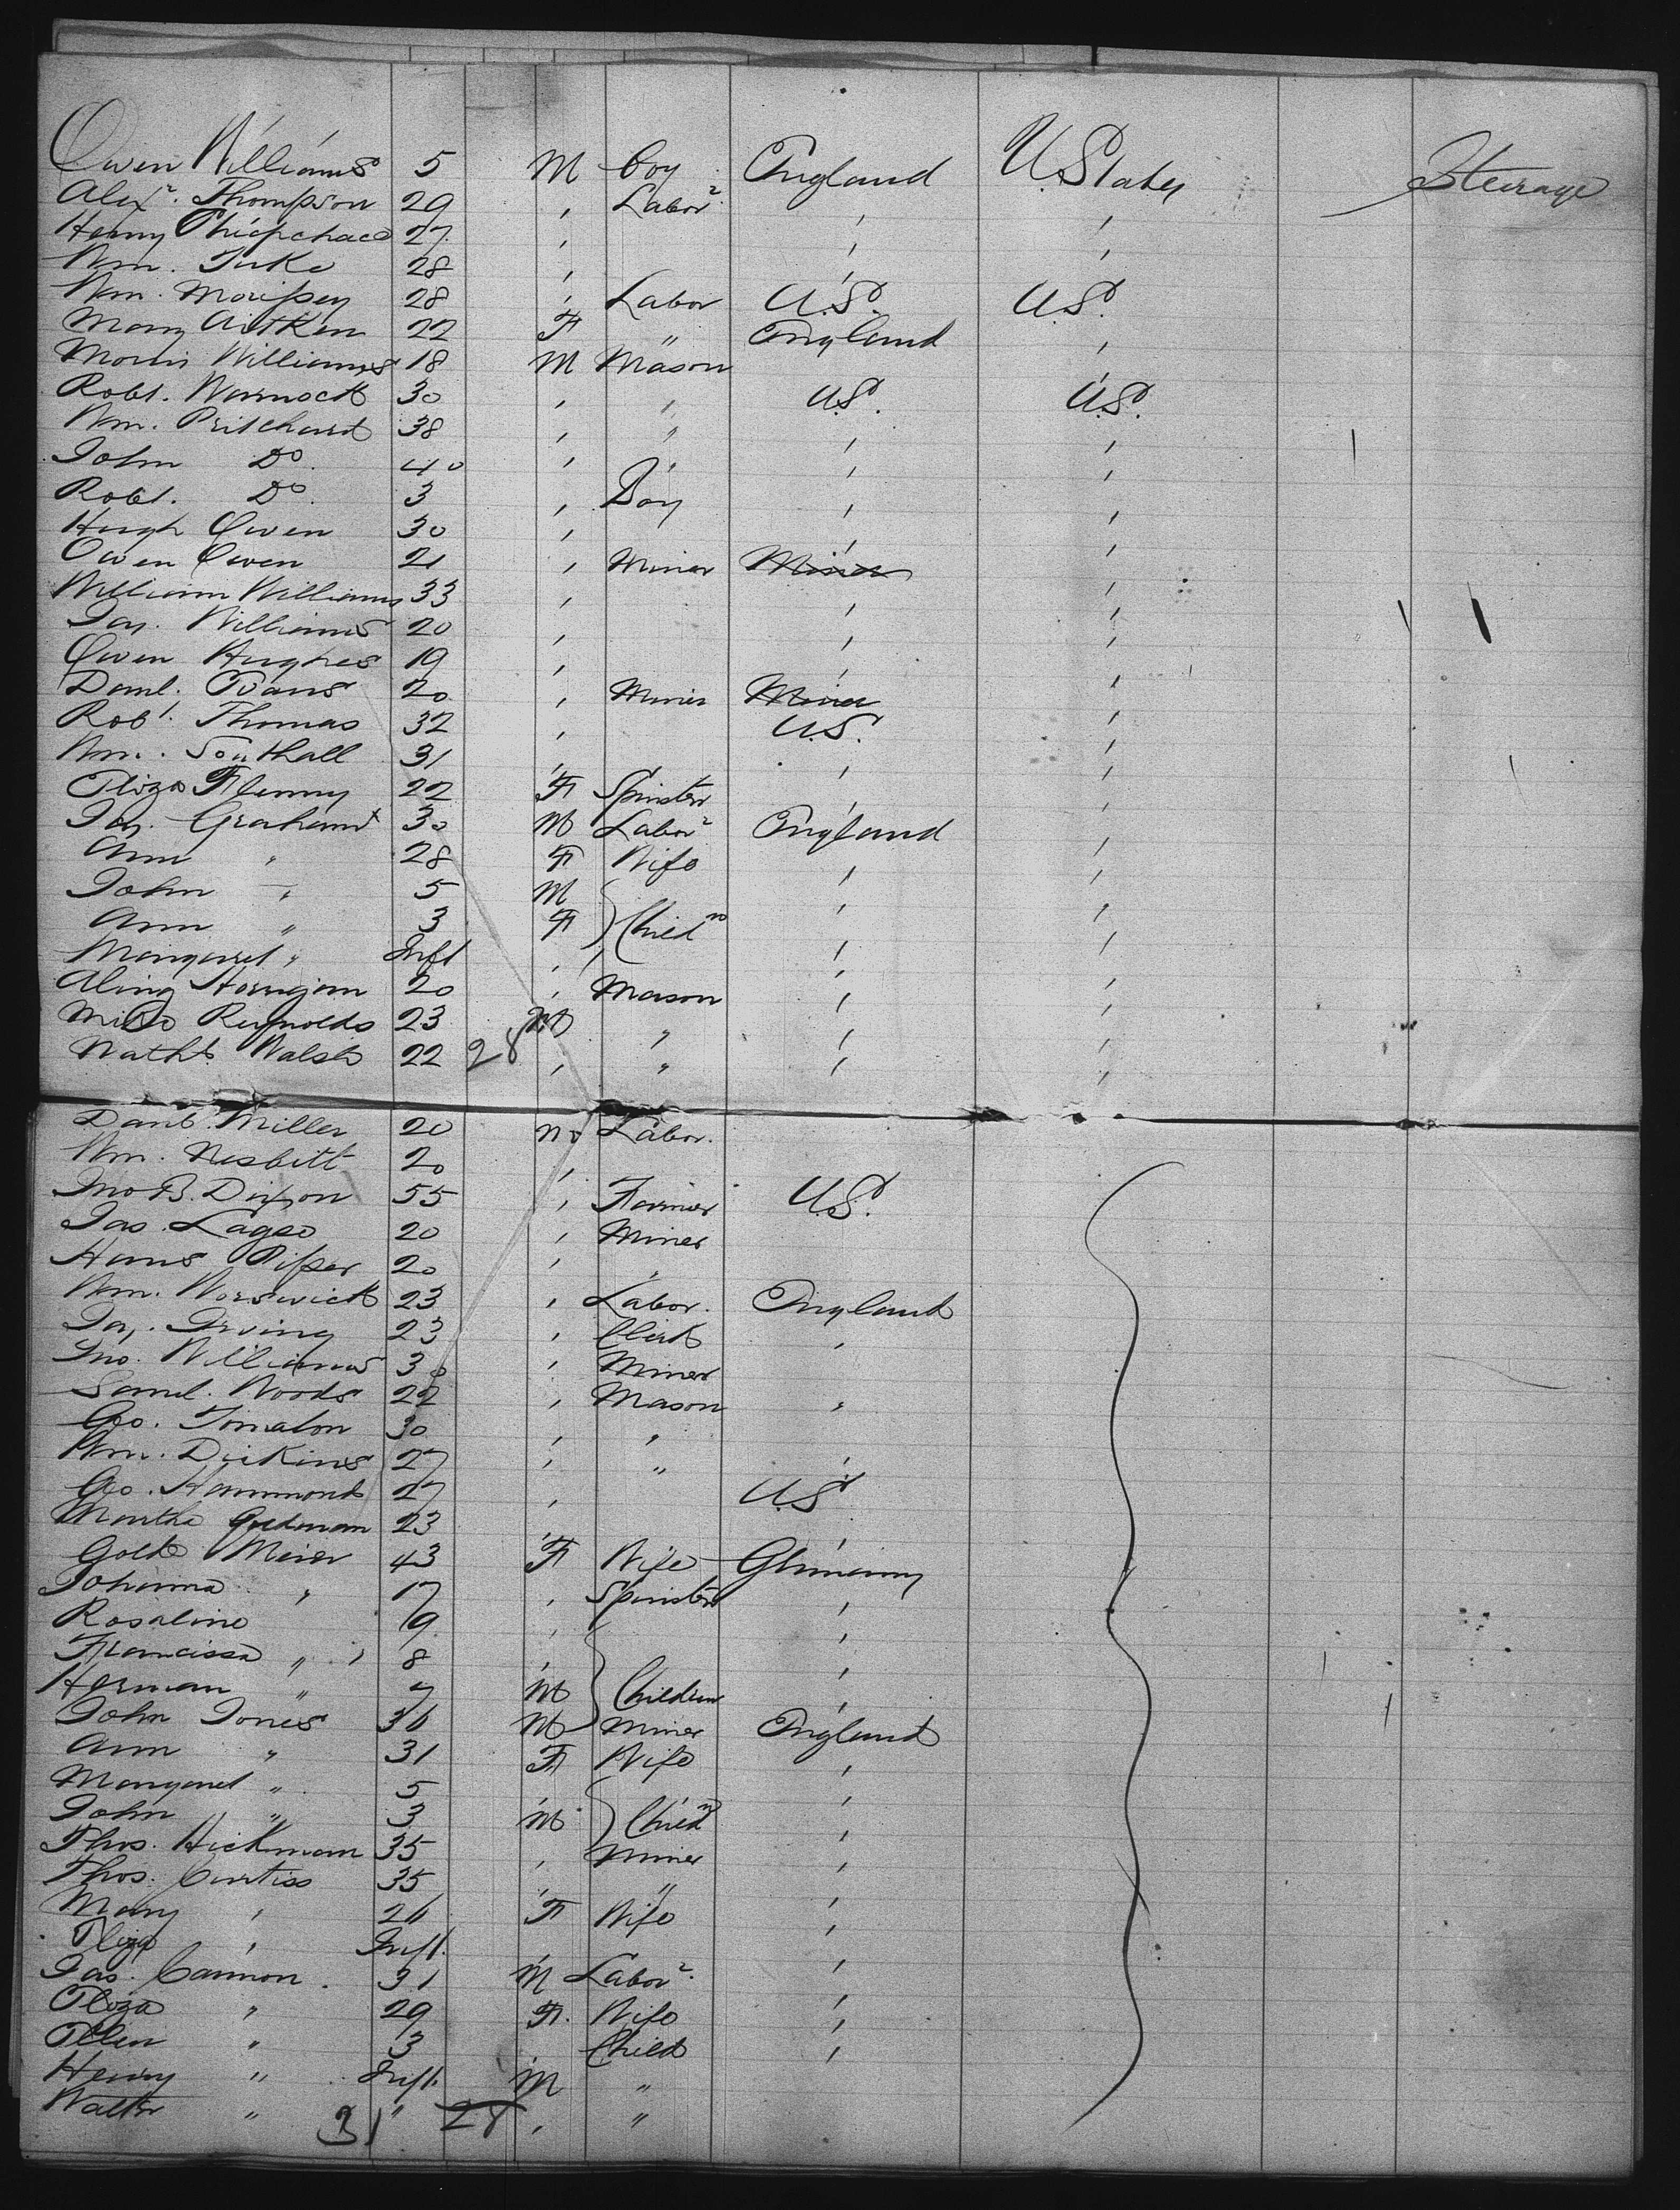 Owen Williams 5 M boy England U. States Steerage
Alexr. Thompson 29 , Labor , ,
Henry 27 , , ,
Wm. Tuke 28 , ,
Wm. Morissey 28 , Labor U.S. U.S.
Mary Aitken 22 F " England ,
Morris Williams 18 M Mason ,
Robt. Warnock 30 , , U.S. U.S.
Wm. Pritchard 38 , " , ,
John Do. 40 , , , ,
Robt. Do. 3 , Boy , ,
Hugh Owen 30 , , ,
Owen Owen 21 , Miner Miner ,
William Williams 33 , , ,
Jas. Williams 20 , , ,
Owen Hughes 19 , , ,
Danl. Evans 20 , Miner Miner ,
Robt. Thomas 32 , U.S. ,
Wm. Southall 31 , , , ,
Eliza Flenny 22 F Spinster , ,
Jas. Graham 30 M Labor England ,
Ann , 28 F Wife , ,
John , 5 M , ,
Ann " 3 F Childn , ,
Margaret " Inft , , ,
20 , Mason , ,
Reynolds 23 M , , ,
Nathl. Walsh 22 28 , " , ,
Danl. Miller 20 M Labor.
Wm. Nesbitt 20 ,
Jno B. Dixon 55 , Farmer U.S.
Jas. 20 , Miner
Hans Pisser 20 , ,
Wm. Worswick 23 , Labor. England
Jas. Irving 23 , Clerk ,
Jno. Williams 30 , Miner
Saml. Woods 22 , Mason ,
Geo. 30 , ,
Wm. Dickins 27 , " ,
Geo. Hammond 27 , U.S.
Martha 23 , ,
Meier 43 F Wife Germany
Johanna , 17 , Spinster ,
Rosaline 9 , ,
Francissa " 8 , ,
Herman " 7 M Children ,
John Jones 36 M Miner England
Ann " 31 F Wife ,
Margaret " 5 , ,
John " 3 M Childn ,
Thos. Hickman 35 , Miner ,
Thos. Curtiss 35 , " ,
Mary , 26 F Wife ,
Eliza , Inft. ,
Jas. Cannon. 31 M Labor.
Eliza " 29 F. Wife ,
Ellen " 3 Child ,
Henry " Inft. M "
Walter " " , "
31 28